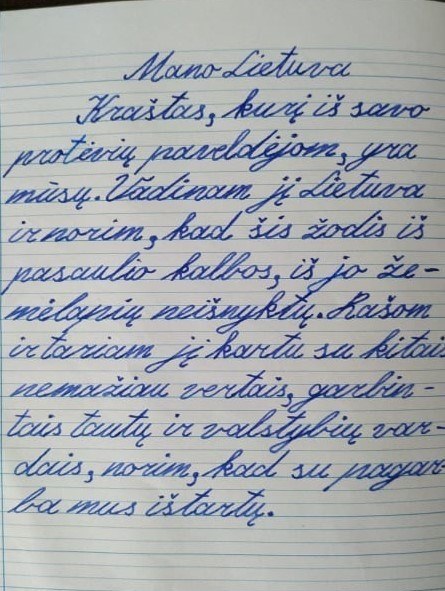 Mano Lietuva
Kraštas, kurį iš savo
protėvių paveldėjom, yra
mūsų. Vadinam jį Lietuva
ir norim, kad šis žodis iš
pasaulio kalbos, iš jo že-
mėlapių neišnyktų. Rašom
ir tariam jį kartu su kitais
nemažiau vertais, garbin-
tais tautų ir valstybių var-
dais, norim, kad su pagar-
ba mus ištartų.